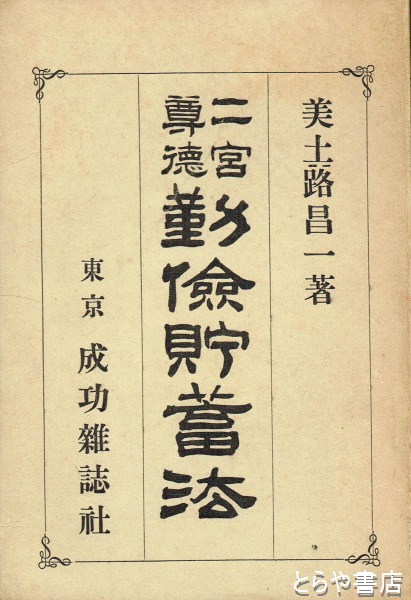 美土路昌一著
二宮尊德勤儉貯蓄法
東京 成功雜誌社
とらや書店